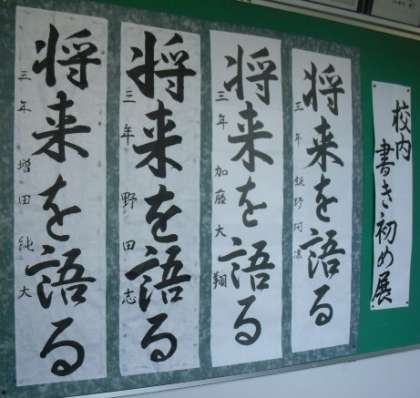 校内
書き初め展
将来を語る
三年 加藤大翔
将来を語る
三年 野田志
将来を語る
三年 増田純大
将来を語る
三年